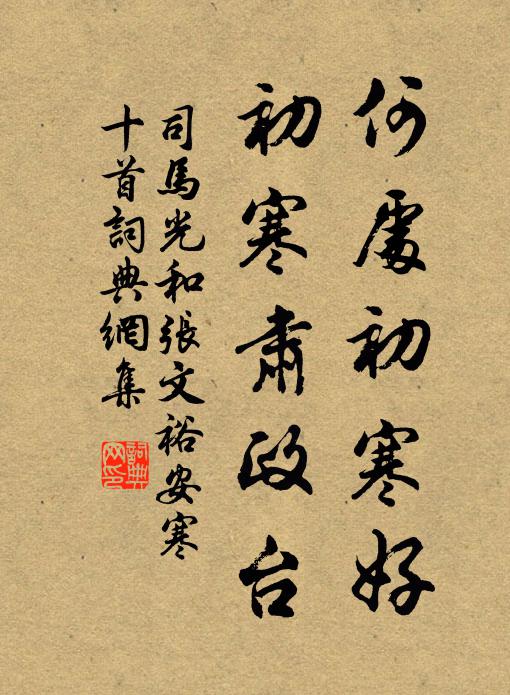 何處初寒好
初寒肅政台
司馬光和張文裕安寒
十首詞典網集
詞典网印